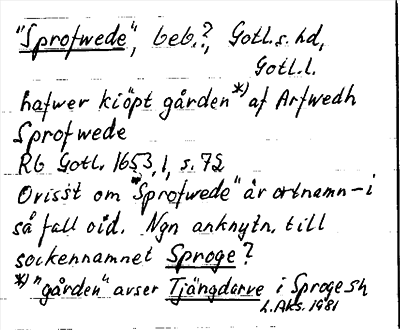 "Sprofwede", beb.?, Gotl.s. hd,
Gotl.l.
hafwer kiöpt gården *) af Arfwedh
Sprofwede
RG Gotl. 1653,1, s. 72
Ovisst om "Sprofwede" är ortnamn - i
så fall oid. Ngn anknytn. till
sockennamnet Sproge?
*) "gården" avser Tjängdarve i Sproge sn
L.Aks. 1981